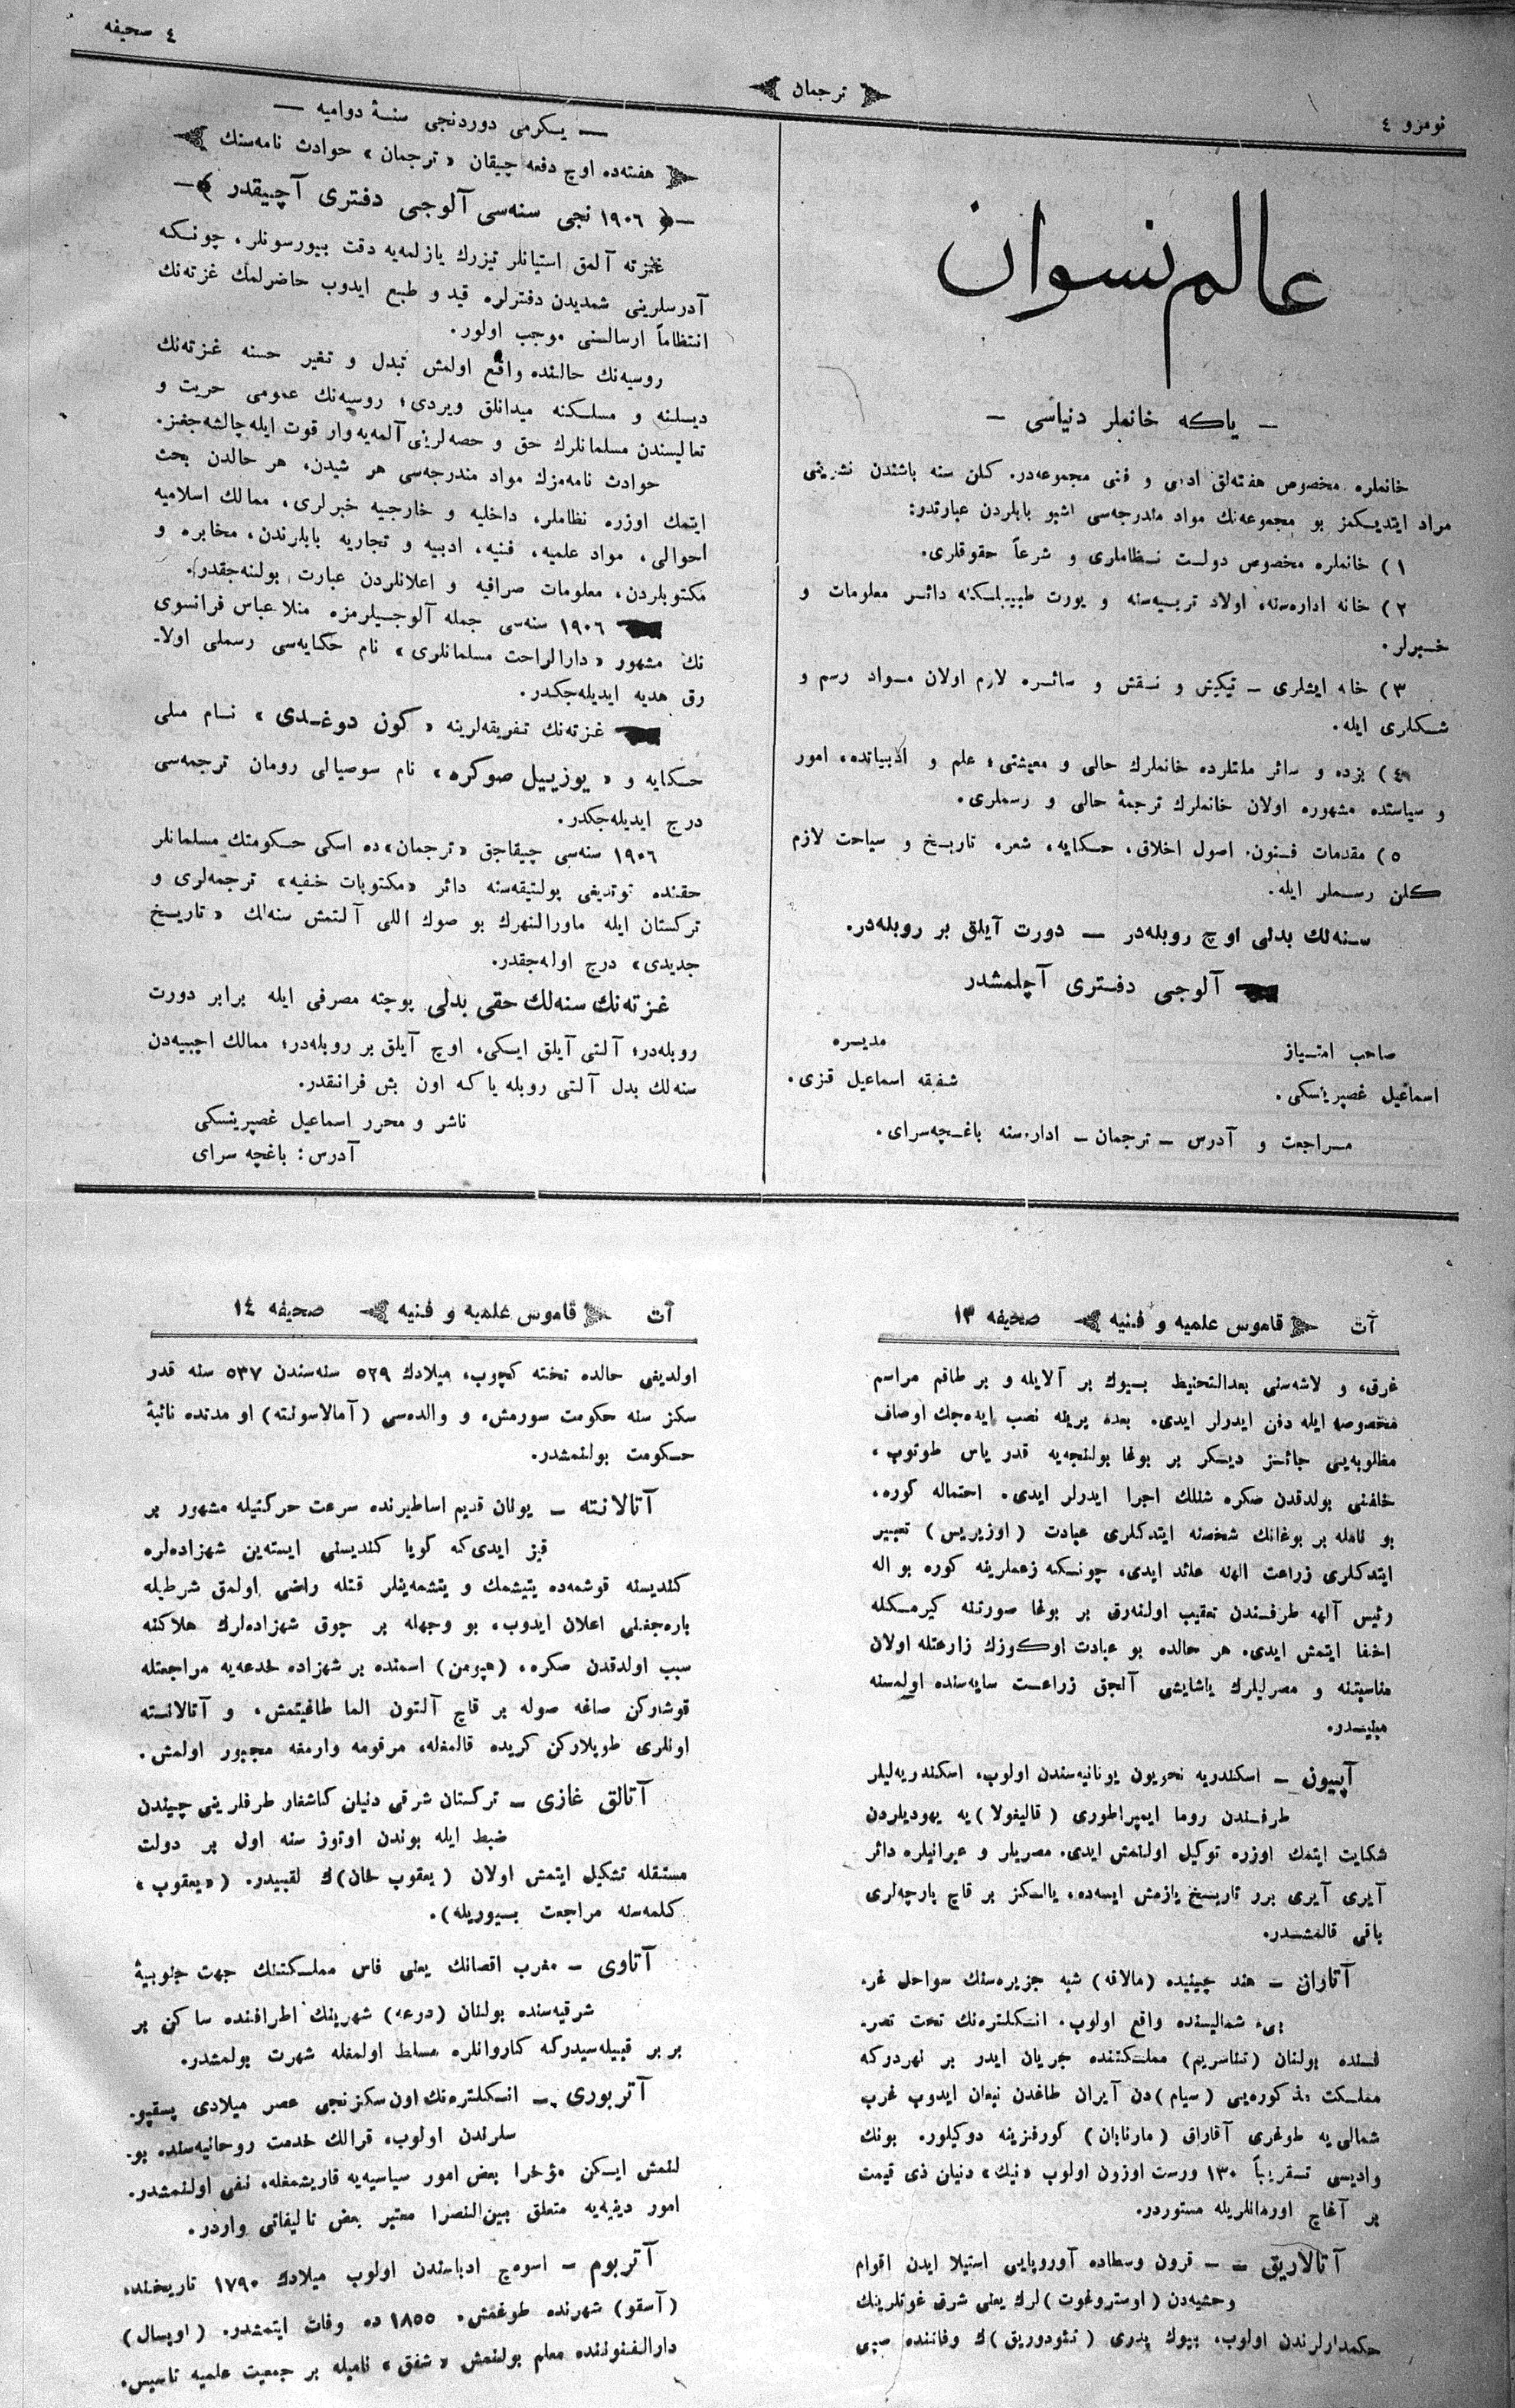 نومرو ٤
ترجمان
٤ صحیفه
عالم نسوان
— یاكه خانملر دنیاسی —
خانملره مخصوص هفته‌لق ادبی و فنی مجموعه‌در. كلن سنه باشندن نشرینی
مراد ایتدیكمز بو مجموعه‌نك مواد مندرجه‌سی اشبو بابلردن عبارتدو:
١) خانملره مخصوص دولت نظاملری و شرعاً حقوقلری.
٢) خانه اداره‌سنه، اولاد تربیه‌سنه و یورت طبیبلكنه دائر معلومات و
خبرلر.
٣) خانه ایشلری — تیكیش و نقش و سائره لازم اولان مواد رسم و
شكلری ایله.
٤) بزده و سائر ملتلرده خانملرك حالی و معیشتی؛ علم و ادبیاتده، امور
و سیاستده مشهوره اولان خانملرك ترجمهٔ حالی و رسملری.
٥) مقدمات فنون. اصول اخلاق، حكایه، شعر، تاریخ و سیاحت لازم
كلن رسملر ایله.
سنه‌لك بدلی اوچ روبله‌در — دورت آیلق بر روبله‌در.
آلوجی دفتری آچلمشدر
صاحب امتیاز
مدیره
اسماعیل غصپرینسكی.
شفیقه اسماعیل قزی.
مراجعت و آدرس — ترجمان — اداره‌سنه باغچه‌سرای.
— یكرمی دوردنجی سنهٔ دوامیه —
هفته‌ده اوچ دفعه چیقان «ترجمان» حوادث نامه‌سنك
—﴿ ١٩٠٦ نجی سنه‌سی آلوجی دفتری آچیقدر ﴾—
غزته آلمق استیانلر تیزرك یازلمه‌یه دقت بیورسونلر، چونكه
آدرسلرینی شمدیدن دفترلره قید و طبع ایدوب حاضرلمك غزته‌نك
انتظاماً ارسالسنی موجب اولور.
روسیه‌نك حالنده واقع اولمش تبدل و تغیر حسنه غزته‌نك
دیلنه و مسلكنه میدانلق ویردی؛ روسیه‌نك عمومی حریت و
تعالیسندن مسلمانلرك حق و حصه‌لرینی آلمه‌یه وار قوت ایله چالشه‌جغز.
حوادث نامه‌مزك مواد مندرجه‌سی هر شیدن، هر حالدن بحث
ایتمك اوزره نظاملر، داخلیه و خارجیه خبرلری، ممالك اسلامیه
احوالی، مواد علمیه، فنیه، ادبیه و تجاریه بابلرندن، مخابره و
مكتوبلردن، معلومات صرافیه و اعلانلردن عبارت بولنه‌جقدر.
١٩٠٦ سنه‌سی جمله آلوجیلرمزه منلا عباس فرانسوی
نك مشهور «دارالراحت مسلمانلری» نام حكایه‌سی رسملی اولا-
رق هدیه ایدیله‌جكدر.
غزته‌نك تفریقه‌لرینه «كون دوغدی» نام ملی
حكایه و «یوزییل صوكره» نام سوصیالی رومان ترجمه‌سی
درج ایدیله‌جكدر.
١٩٠٦ سنه‌سی چیقاجق «ترجمان»ده اسكی حكومتك مسلمانلر
حقنده توتدیغی پولتیقه‌سنه دائر «مكتوبات خفیه» ترجمه‌لری و
تركستان ایله ماورالنهرك بو صوك اللی آلتمش سنه‌لك «تاریخ
جدیدی» درج اوله‌جقدر.
غزته‌نك سنه‌لك حقی بدلی پوچته مصرفی ایله برابر دورت
روبله‌در؛ آلتی آیلق ایكی، اوچ آیلق بر روبله‌در؛ ممالك اجبیه‌دن
سنه‌لك بدل آلتی روبله یاكه اون بش فرانقدر.
ناشر و محرر اسماعیل غصپرینسكی
آدرس: باغچه سرای
آت قاموس علمیه و فنیه صحیفه ١٣
غرق، و لاشه‌سنی بعدالتحنیط بیوك بر آلایله و بر طاقم مراسم
مخصوصه ایله دفن ایدرلر ایدی. بعده یرینه نصب ایده‌جك اوصاف
مطلوبه‌یی جائز دیكر بر بوغا بولنجه‌یه قدر یاس طوتوب،
خلفنی بولدقدن صكره شنلك اجرا ایدرلر ایدی. احتماله كوره،
بو نامله بر بوغانك شخصنه ایتدكلری عبادت (اوزیریس) تعبیر
ایتدكلری زراعت الهنه عائد ایدی، چونكه زعملرینه كوره بو اله
رئیس آلهه طرفندن تعقیب اولنه‌رق بر بوغا صورتنه كیرمكله
اخفا ایتمش ایدی. هر حالده بو عبادت اوكوزك زراعتله اولان
مناسبتنه و مصرلیلرك یاشایشی آلجق زراعت سایه‌سنده اولمسنه
مبنیدر.
آپیون — اسكندریه نحویون یونانیه‌سندن اولوب، اسكندریه‌لیلر
طرفندن روما ایمپراطوری (قالیغولا)یه یهودیلردن
شكایت ایتمك اوزره توكیل اولنمش ایدی. مصریلر و عبرانیلره دائر
آیری آیری برر تاریخ یازمش ایسه‌ده، یالكز بر قاچ پارچه‌لری
باقی قالمشدر.
آتاران — هند چینیده (مالاقه) شبه جزیره‌سنك سواحل غر-
بیء شمالیسنده واقع اولوب، انكلتره‌نك تحت تصر-
فنده بولنان (تناسریم) مملكتنده جریان ایدر بر نهردركه
مملكت مذكوره‌یی (سیام)دن آیران طاغدن نبعان ایدوب غرب
شمالی‌یه طوغری آقارق (مارتابان) كورفزینه دوكیلور. بونك
وادیسی تقریباً ١٣٠ ورست اوزون اولوب «تیك» دنیلن ذی قیمت
بر آغاج اورمانلریله مستوردر.
آتالاریق — قرون وسطاده آوروپایی استیلا ایدن اقوام
وحشیه‌دن (اوستروغوت)لرك یعنی شرق غوتلرینك
حكمدارلرندن اولوب، بیوك پدری (تئودوریق)ك وفاتنده صبی
آت قاموس علمیه و فنیه صحیفه ١٤
اولدیغی حالده تخته كچوب، میلادك ٥٢٩ سنه‌سندن ٥٣٧ سنه قدر
سكز سنه حكومت سورمش، و والده‌سی (آمالاسونته) او مدتده نائبهٔ
حكومت بولنمشدر.
آتالانته — یونان قدیم اساطیرنده سرعت حركتیله مشهور بر
قیز ایدی‌كه گویا كندیسنی ایسته‌ین شهزاده‌لره
كندیسنه قوشمه‌ده یتیشمك و یتشمه‌ینلر قتله راضی اولمق شرطیله
باره‌جغنی اعلان ایدوب، بو وجهله بر چوق شهزاده‌لرك هلاكنه
سبب اولدقدن صكره، (هیپومن) اسمنده بر شهزاده خدعه‌یه مراجعتله
قوشاركن صاغه صوله بر قاچ آلتون الما طاغیتمش، و آتالانته
اونلری طوپلاركن كریده قالمغله، مرقومه وارمغه مجبور اولمش.
آتالق غازی — تركستان شرقی دنیلن كاشغار طرفلرینی چیندن
ضبط ایله بوندن اوتوز سنه اول بر دولت
مستقله تشكیل ایتمش اولان (یعقوب خان)ك لقبیدر. («یعقوب»
كلمه‌سنه مراجعت بیوریله).
آتاوی — مغرب اقصانك یعنی فاس مملكتنك جهت جنوبیهٔ
شرقیه‌سنده بولنان (درعه) شهرینك اطرافنده ساكن بر
بربر قبیله‌سیدركه كاروانلره مسلط اولمغله شهرت بولمشدر.
آتربوری — انكلتره‌نك اون سكزنجی عصر میلادی پسقپو-
سلرندن اولوب، قرالك خدمت روحانیه‌سنده بو-
لنمش ایسكن مؤخرا بعض امور سیاسیه‌یه قاریشمغله، نفی اولنمشدر.
امور دینیه‌یه متعلق بین‌النصرا معتبر بعض تالیفاتی واردر.
آتربوم — اسوج ادباسندن اولوب میلادك ١٧٩٠ تاریخنده
(آسقو) شهرنده طوغمش، ١٨٥٥ ده وفات ایتمشدر. (اوپسال)
دارالفنوننده معلم بولنمش «شفق» نامیله بر جمعیت علمیه تاسیس،